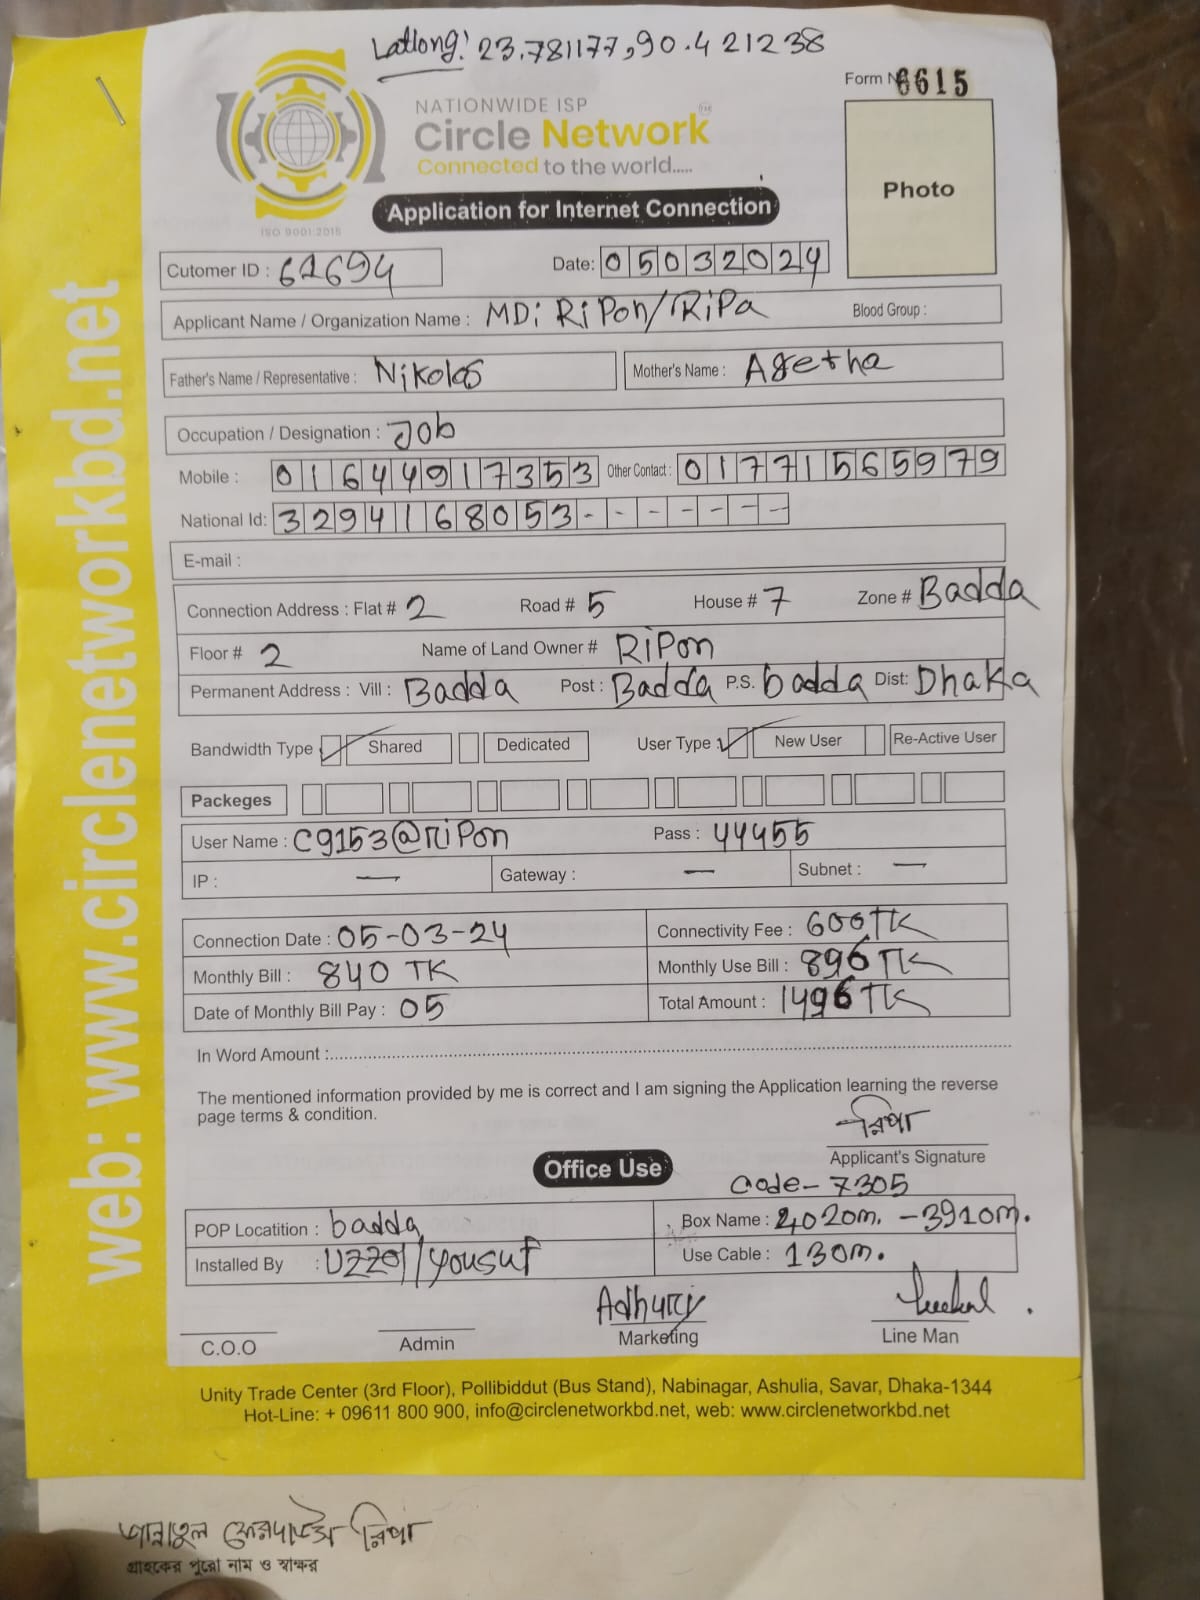 Latlong: 23.781177,90.421238
Form No 6615
NATIONWIDE ISP
Circle Network
Connected to the world.....
ISO 9001:2015
Application for Internet Connection
Photo
Cutomer ID : 61694
Date: 05032024
Applicant Name / Organization Name : MD: RiPon/RiPa Blood Group :
Father's Name / Representative : Nikolas Mother's Name : Agetha
Occupation / Designation : Job
Mobile : 01644917353 Other Contact : 01771565979
National Id: 3294168053- - - - - - -
E-mail :
Connection Address : Flat # 2 Road # 5 House # 7 Zone # Badda
Floor # 2 Name of Land Owner # RiPon
Permanent Address : Vill : Badda Post : Badda P.S. badda Dist: Dhaka
Bandwidth Type Shared Dedicated User Type : New User Re-Active User
Packeges
User Name : C9153@RiPon Pass : 44455
IP : — Gateway : — Subnet : —
Connection Date : 05-03-24 Connectivity Fee : 600TK
Monthly Bill : 840 TK Monthly Use Bill : 896TK
Date of Monthly Bill Pay : 05 Total Amount : 1496TK
In Word Amount :
The mentioned information provided by me is correct and I am signing the Application learning the reverse
page terms & condition.
রিপা
Applicant's Signature
Office Use
Code- 7305
POP Locatition : badda Box Name : 4020m. -3910m.
Installed By : Uzzol/Yousuf Use Cable : 130m.
Adhury
C.O.O Admin Marketing Line Man
Unity Trade Center (3rd Floor), Pollibiddut (Bus Stand), Nabinagar, Ashulia, Savar, Dhaka-1344
Hot-Line: + 09611 800 900, info@circlenetworkbd.net, web: www.circlenetworkbd.net
web: www.circlenetworkbd.net
জান্নাতুল ফেরদাউস রিপা
গ্রাহকের পুরো নাম ও স্বাক্ষর